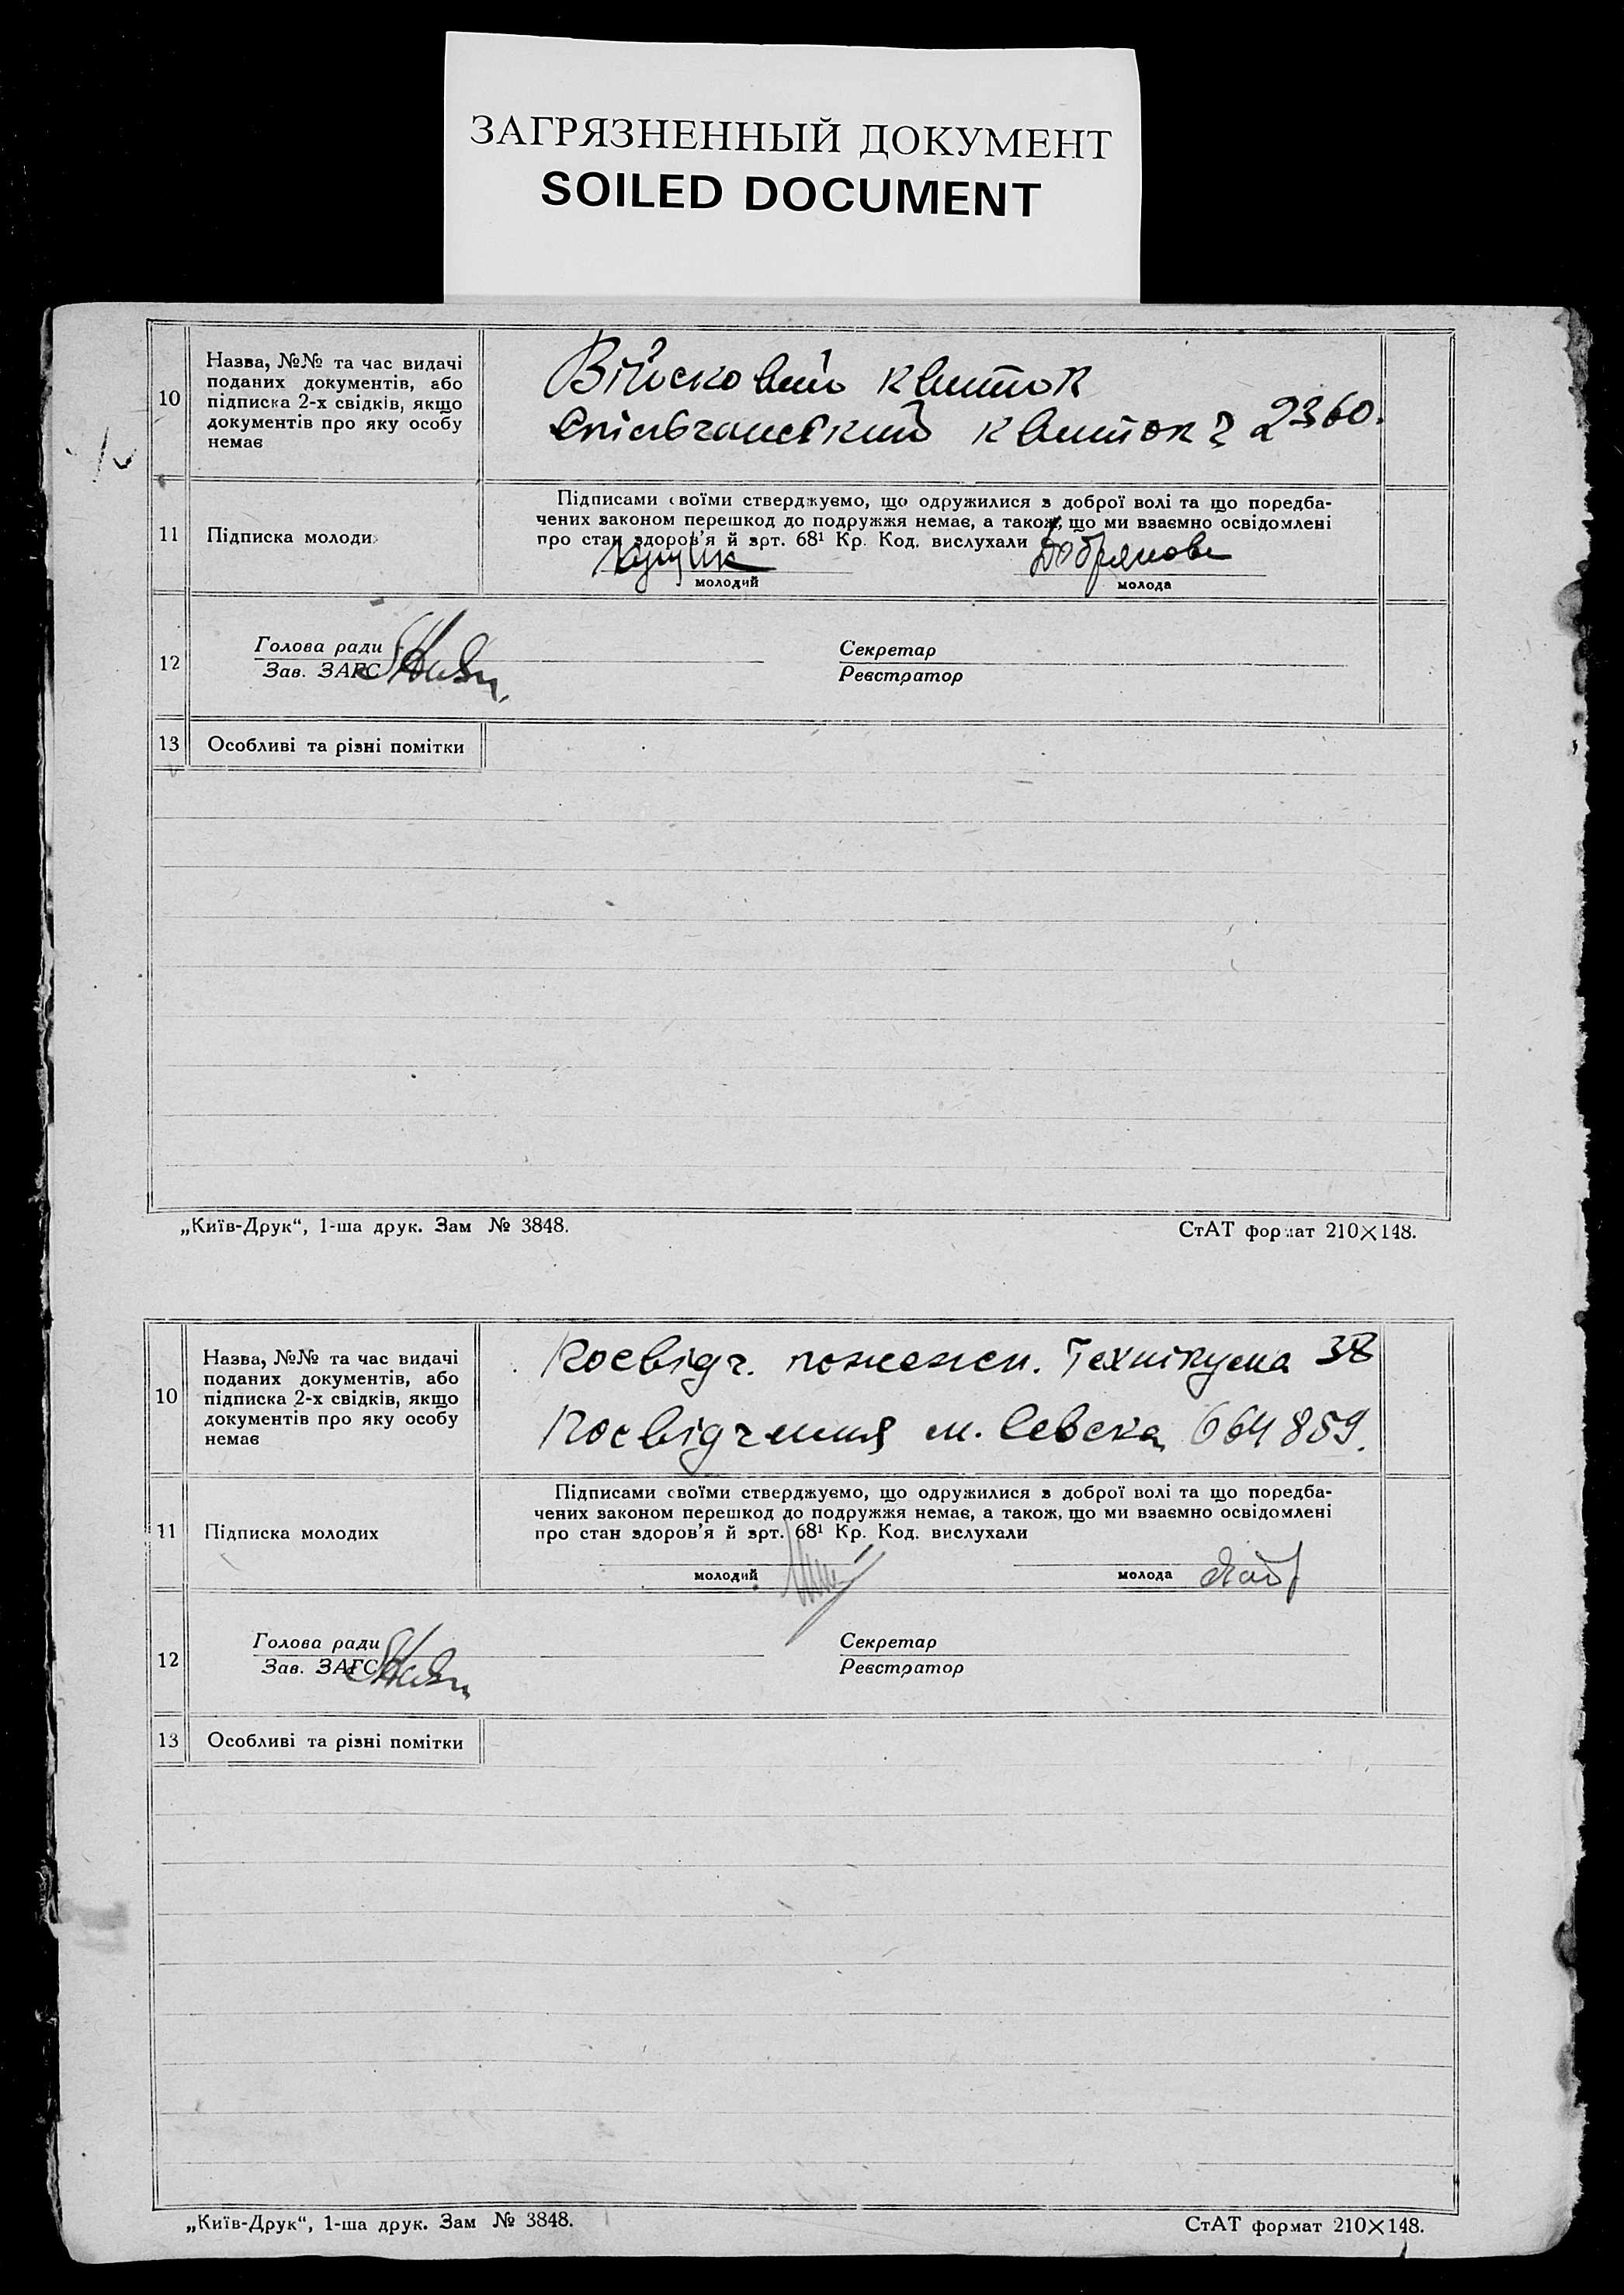 ЗАГРЯЗНЕННЫЙ ДОКУМЕНТ
SOILED DOCUMENT
10
Назва, №№ та час видачі
поданих документів, або
підписка 2-х свідків, якщо
документів про яку особу
немає
Військовий квиток
Спільчанський квиток 2360.
11
Підписка молоди
Підписами своїми стверджуємо, що одружилися з доброї волі та що поредба-
чених законом перешкод до подружжя немає, а також, що ми взаємно освідомлені
про стан здоров'я й арт. 68¹ Кр. Код. вислухали
молодий
молода
12
Голова ради
Зав. ЗАГС
Секретар
Реєстратор
13
Особливі та різні помітки
„Київ-Друк“, 1-ша друк. Зам № 3848.
СтАТ формат 210×148.
10
Назва, №№ та час видачі
поданих документів, або
підписка 2-х свідків, якщо
документів про яку особу
немає
Посвідч. пожежн. Технікума 38
Посвідчення м. Севска 664859.
11
Підписка молодих
Підписами своїми стверджуємо, що одружилися з доброї волі та що поредба-
чених законом перешкод до подружжя немає, а також, що ми взаємно освідомлені
про стан здоров'я й арт. 68¹ Кр. Код. вислухали
молодий
молода
12
Голова ради
Зав. ЗАГС
Секретар
Реєстратор
13
Особливі та різні помітки
„Київ-Друк“, 1-ша друк. Зам № 3848.
СтАТ формат 210×148.